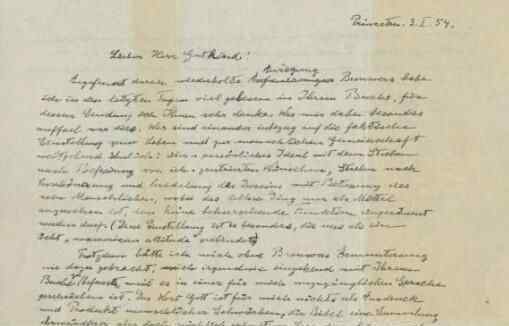 Princeton. 3. I. 54.
Lieber Herr Gutkind!
Anregung
Angefeuert durch wiederholte Brouwers habe
ich in den letzten Tagen viel gelesen in Ihrem Buche, für
dessen Sendung ich Ihnen sehr danke. Was mir dabei besonders
auffiel war dies. Wir sind einander inbezug auf die faktische
Einstellung zum Leben und zur menschlichen Gemeinschaft
weitgehend ähnlich: Ideal mit dem Streben
nach Befreiung von ich-zentrierten Wünschen, Streben nach
Verschönerung und Veredelung des Daseins mit Betonung des
rein Menschlichen, wobei das leblose Ding nur als Mittel
anzusehen ist, dem keine beherrschende Funktion eingeräumt
werden darf. (Diese Einstellung ist es besonders, die uns als ein
echt "unamerican attitude" verbindet)
Trotzdem hätte ich mich ohne Brouwers Ermunterung
nie dazu gebracht, mich irgendwie eingehend mit Ihrem
Buche zu befassen, weil es in einer für mich unzugänglichen Sprache
geschrieben ist. Das Wort Gott ist für mich nichts als Ausdruck
und Produkt menschlicher Schwächen, die Bibel eine Sammlung
ehrwürdiger aber doch